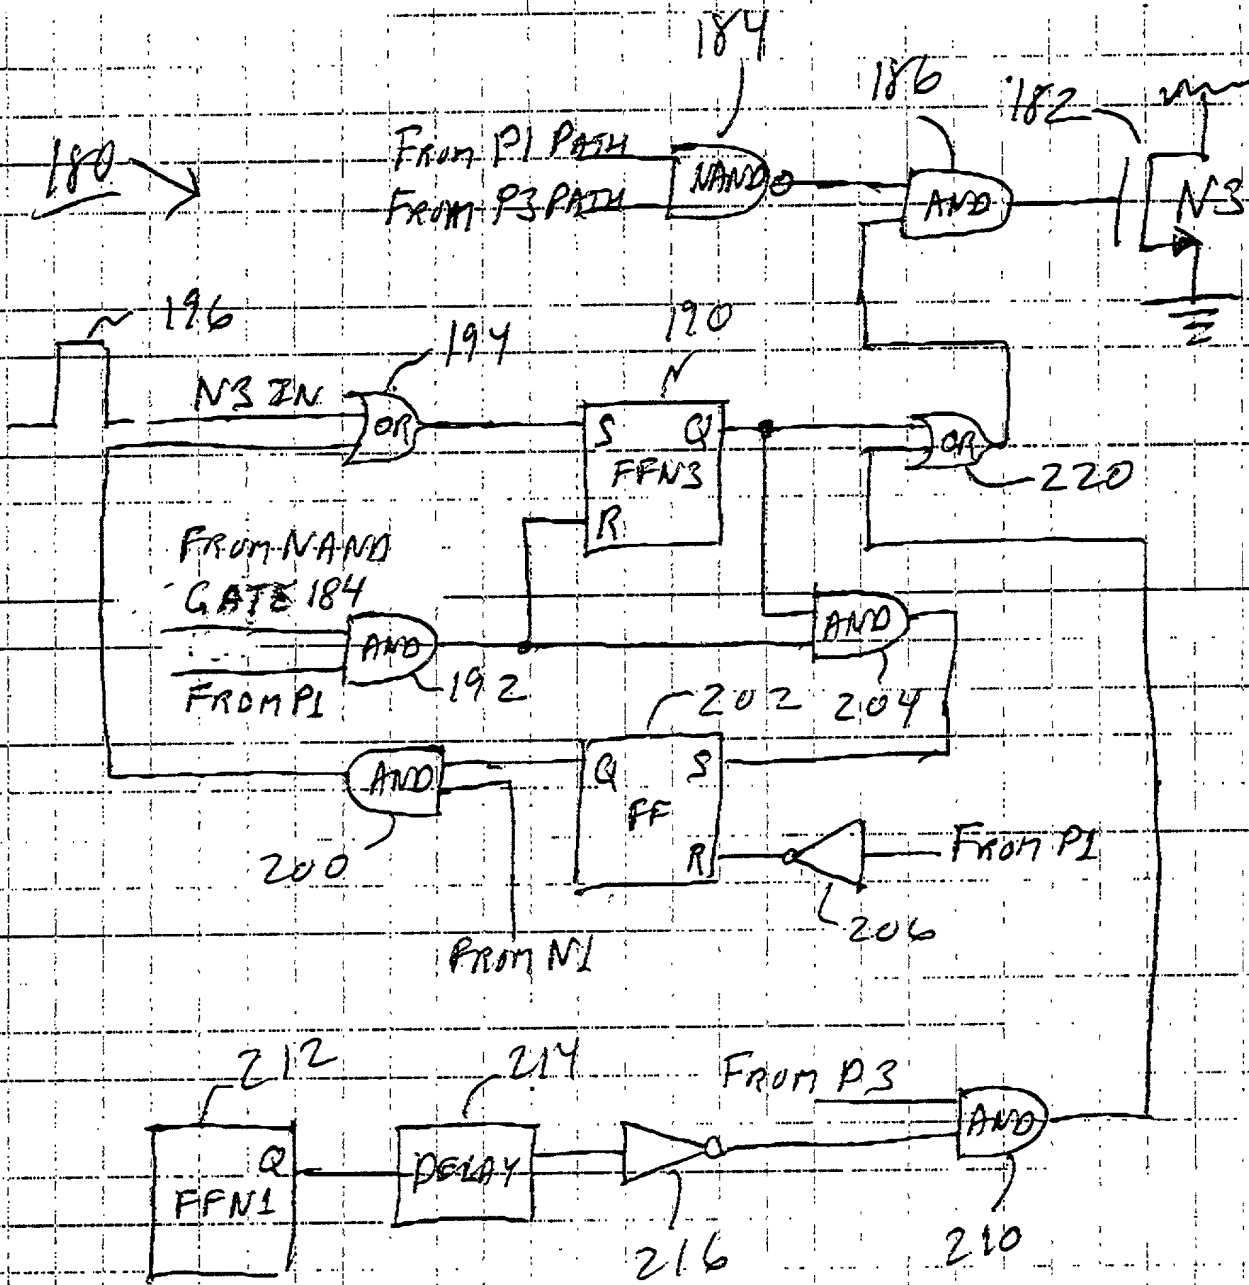 184
186
182
180
FROM P1 PATH
FROM P3 PATH
NAND
AND
N3
196
194
190
N3 IN
OR
S Q
FFN3
R
OR
220
FROM NAND
GATE 184
AND
192
FROM P1
AND
204
202
AND
200
Q S
FF
R
FROM P1
206
FROM N1
212
214
FROM P3
Q
FFN1
DELAY
216
AND
210